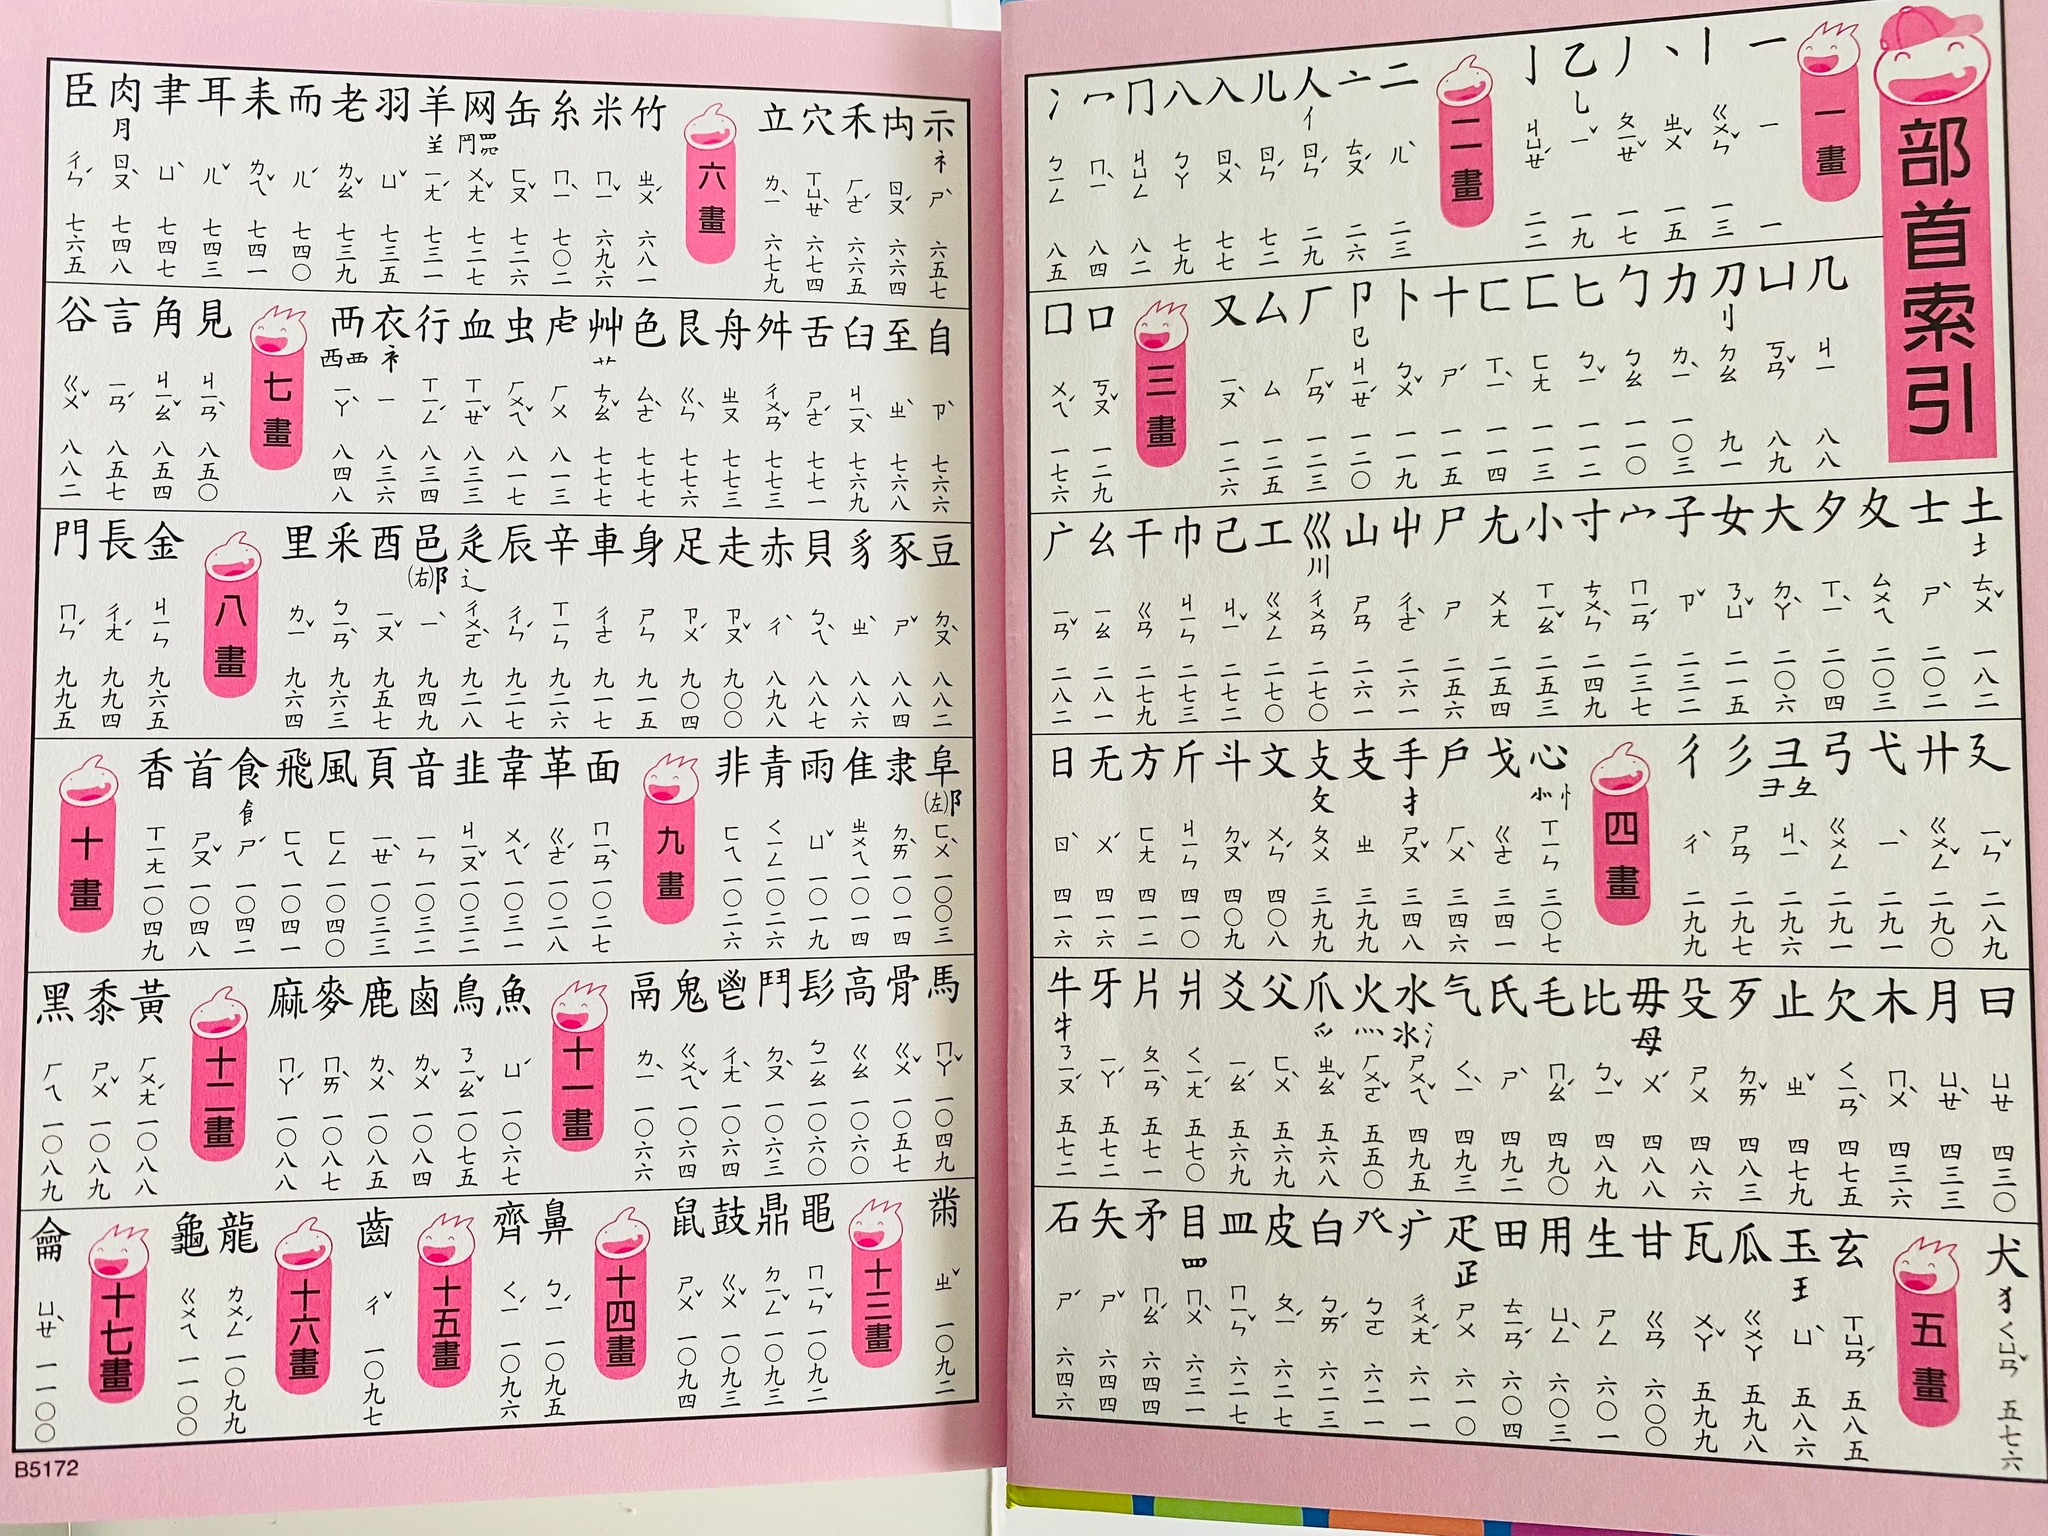 部首索引
一畫
一 ㄧ 一
丨 ㄍㄨㄣˇ 一三
丶 ㄓㄨˇ 一五
丿 ㄆㄧㄝˇ 一七
乙 乚 ㄧˇ 一九
亅 ㄐㄩㄝˊ 二二
二畫
二 ㄦˋ 二三
亠 ㄊㄡˊ 二六
人 亻 ㄖㄣˊ 二九
儿 ㄖㄣˊ 七二
入 ㄖㄨˋ 七七
八 ㄅㄚ 七九
冂 ㄐㄩㄥ 八二
冖 ㄇㄧˋ 八四
冫 ㄅㄧㄥ 八五
几 ㄐㄧ 八八
凵 ㄎㄢˇ 八九
刀 刂 ㄉㄠ 九一
力 ㄌㄧˋ 一〇三
勹 ㄅㄠ 一一〇
匕 ㄅㄧˇ 一一二
匚 ㄈㄤ 一一三
匸 ㄒㄧˋ 一一四
十 ㄕˊ 一一五
卜 ㄅㄨˇ 一一九
卩 㔾 ㄐㄧㄝˊ 一二〇
厂 ㄏㄢˇ 一二三
厶 ㄙ 一二五
又 ㄧㄡˋ 一二六
三畫
口 ㄎㄡˇ 一二九
囗 ㄨㄟˊ 一七六
土 ㄊㄨˇ 一八二
士 ㄕˋ 二〇二
夊 ㄙㄨㄟ 二〇三
夕 ㄒㄧˋ 二〇四
大 ㄉㄚˋ 二〇六
女 ㄋㄩˇ 二一五
子 ㄗˇ 二三二
宀 ㄇㄧㄢˊ 二三七
寸 ㄘㄨㄣˋ 二四九
小 ㄒㄧㄠˇ 二五三
尢 ㄨㄤ 二五四
尸 ㄕ 二五六
屮 ㄔㄜˋ 二六一
山 ㄕㄢ 二六一
巛 川 ㄔㄨㄢ 二七〇
工 ㄍㄨㄥ 二七〇
己 ㄐㄧˇ 二七二
巾 ㄐㄧㄣ 二七三
干 ㄍㄢ 二七九
幺 ㄧㄠ 二八一
广 ㄧㄢˇ 二八二
廴 ㄧㄣˇ 二八九
廾 ㄍㄨㄥˇ 二九〇
弋 ㄧˋ 二九一
弓 ㄍㄨㄥ 二九一
彐 ヨ 彑 ㄐㄧˋ 二九六
彡 ㄕㄢ 二九七
彳 ㄔˋ 二九九
四畫
心 忄 ㄒㄧㄣ 三〇七
戈 ㄍㄜ 三四一
戶 ㄏㄨˋ 三四六
手 扌 ㄕㄡˇ 三四八
支 ㄓ 三九九
攴 攵 ㄆㄨ 三九九
文 ㄨㄣˊ 四〇八
斗 ㄉㄡˇ 四〇九
斤 ㄐㄧㄣ 四一〇
方 ㄈㄤ 四一二
无 ㄨˊ 四一六
日 ㄖˋ 四一六
曰 ㄩㄝ 四三〇
月 ㄩㄝˋ 四三三
木 ㄇㄨˋ 四三六
欠 ㄑㄧㄢˋ 四七五
止 ㄓˇ 四七九
歹 ㄉㄞˇ 四八三
殳 ㄕㄨ 四八六
毋 母 ㄨˊ 四八八
比 ㄅㄧˇ 四八九
毛 ㄇㄠˊ 四九〇
氏 ㄕˋ 四九二
气 ㄑㄧˋ 四九三
水 氺 氵 ㄕㄨㄟˇ 四九五
火 灬 ㄏㄨㄛˇ 五五〇
爪 爫 ㄓㄠˇ 五六八
父 ㄈㄨˋ 五六九
爻 ㄧㄠˊ 五六九
爿 ㄑㄧㄤˊ 五七〇
片 ㄆㄧㄢˋ 五七一
牙 ㄧㄚˊ 五七二
牛 牜 ㄋㄧㄡˊ 五七二
犬 犭 ㄑㄩㄢˇ 五七六
五畫
玄 ㄒㄩㄢˊ 五八五
玉 王 ㄩˋ 五八六
瓜 ㄍㄨㄚ 五九八
瓦 ㄨㄚˇ 五九九
甘 ㄍㄢ 六〇〇
生 ㄕㄥ 六〇一
用 ㄩㄥˋ 六〇三
田 ㄊㄧㄢˊ 六〇四
疋 ㄕㄨ 六一〇
疒 ㄔㄨㄤˊ 六一一
癶 ㄅㄛ 六二一
白 ㄅㄞˊ 六二三
皮 ㄆㄧˊ 六二七
皿 ㄇㄧㄣˇ 六二七
目 罒 ㄇㄨˋ 六三一
矛 ㄇㄠˊ 六四四
矢 ㄕˇ 六四四
石 ㄕˊ 六四六
示 礻 ㄕˋ 六五七
禸 ㄖㄡˊ 六六四
禾 ㄏㄜˊ 六六五
穴 ㄒㄩㄝˋ 六七四
立 ㄌㄧˋ 六七九
六畫
竹 ㄓㄨˊ 六八一
米 ㄇㄧˇ 六九六
糸 ㄇㄧˋ 七〇二
缶 ㄈㄡˇ 七二六
网 罒 ㄨㄤˇ 七二七
羊 ㄧㄤˊ 七三一
羽 ㄩˇ 七三五
老 ㄌㄠˇ 七三九
而 ㄦˊ 七四〇
耒 ㄌㄟˇ 七四一
耳 ㄦˇ 七四三
聿 ㄩˋ 七四七
肉 月 ㄖㄡˋ 七四八
臣 ㄔㄣˊ 七六五
自 ㄗˋ 七六六
至 ㄓˋ 七六八
臼 ㄐㄧㄡˋ 七六九
舌 ㄕㄜˊ 七七一
舛 ㄔㄨㄢˇ 七七三
舟 ㄓㄡ 七七三
艮 ㄍㄣˋ 七七六
色 ㄙㄜˋ 七七七
艸 艹 ㄘㄠˇ 七七七
虍 ㄏㄨ 八一三
虫 ㄏㄨㄟˇ 八一七
血 ㄒㄧㄝˇ 八三三
行 ㄒㄧㄥˊ 八三四
衣 衤 ㄧ 八三六
襾 西 覀 ㄧㄚˋ 八四八
七畫
見 ㄐㄧㄢˋ 八五〇
角 ㄐㄧㄠˇ 八五四
言 ㄧㄢˊ 八五七
谷 ㄍㄨˇ 八八二
豆 ㄉㄡˋ 八八二
豕 ㄕˇ 八八四
豸 ㄓˋ 八八六
貝 ㄅㄟˋ 八八七
赤 ㄔˋ 八九八
走 ㄗㄡˇ 九〇〇
足 ㄗㄨˊ 九〇四
身 ㄕㄣ 九一五
車 ㄔㄜ 九一七
辛 ㄒㄧㄣ 九二六
辰 ㄔㄣˊ 九二七
辵 辶 ㄔㄨㄛˋ 九二八
邑 (右)阝 ㄧˋ 九四九
酉 ㄧㄡˇ 九五七
釆 ㄅㄧㄢˋ 九六三
里 ㄌㄧˇ 九六四
八畫
金 ㄐㄧㄣ 九六五
長 ㄔㄤˊ 九九四
門 ㄇㄣˊ 九九五
阜 (左)阝 ㄈㄨˋ 一〇〇三
隶 ㄉㄞˋ 一〇一四
隹 ㄓㄨㄟ 一〇一四
雨 ㄩˇ 一〇一九
青 ㄑㄧㄥ 一〇二六
非 ㄈㄟ 一〇二六
九畫
面 ㄇㄧㄢˋ 一〇二七
革 ㄍㄜˊ 一〇二八
韋 ㄨㄟˊ 一〇三一
韭 ㄐㄧㄡˇ 一〇三二
音 ㄧㄣ 一〇三二
頁 ㄧㄝˋ 一〇三三
風 ㄈㄥ 一〇四〇
飛 ㄈㄟ 一〇四一
食 飠 ㄕˊ 一〇四二
首 ㄕㄡˇ 一〇四八
香 ㄒㄧㄤ 一〇四九
十畫
馬 ㄇㄚˇ 一〇四九
骨 ㄍㄨˇ 一〇五七
高 ㄍㄠ 一〇六〇
髟 ㄅㄧㄠ 一〇六〇
鬥 ㄉㄡˋ 一〇六三
鬯 ㄔㄤˋ 一〇六四
鬼 ㄍㄨㄟˇ 一〇六四
鬲 ㄌㄧˋ 一〇六六
十一畫
魚 ㄩˊ 一〇六七
鳥 ㄋㄧㄠˇ 一〇七五
鹵 ㄌㄨˇ 一〇八四
鹿 ㄌㄨˋ 一〇八五
麥 ㄇㄞˋ 一〇八七
麻 ㄇㄚˊ 一〇八八
十二畫
黃 ㄏㄨㄤˊ 一〇八八
黍 ㄕㄨˇ 一〇八九
黑 ㄏㄟ 一〇八九
黹 ㄓˇ 一〇九二
十三畫
黽 ㄇㄧㄣˇ 一〇九二
鼎 ㄉㄧㄥˇ 一〇九三
鼓 ㄍㄨˇ 一〇九三
鼠 ㄕㄨˇ 一〇九四
十四畫
鼻 ㄅㄧˊ 一〇九五
齊 ㄑㄧˊ 一〇九六
十五畫
齒 ㄔˇ 一〇九七
十六畫
龍 ㄌㄨㄥˊ 一〇九九
龜 ㄍㄨㄟ 一一〇〇
十七畫
龠 ㄩㄝˋ 一一〇〇
B5172